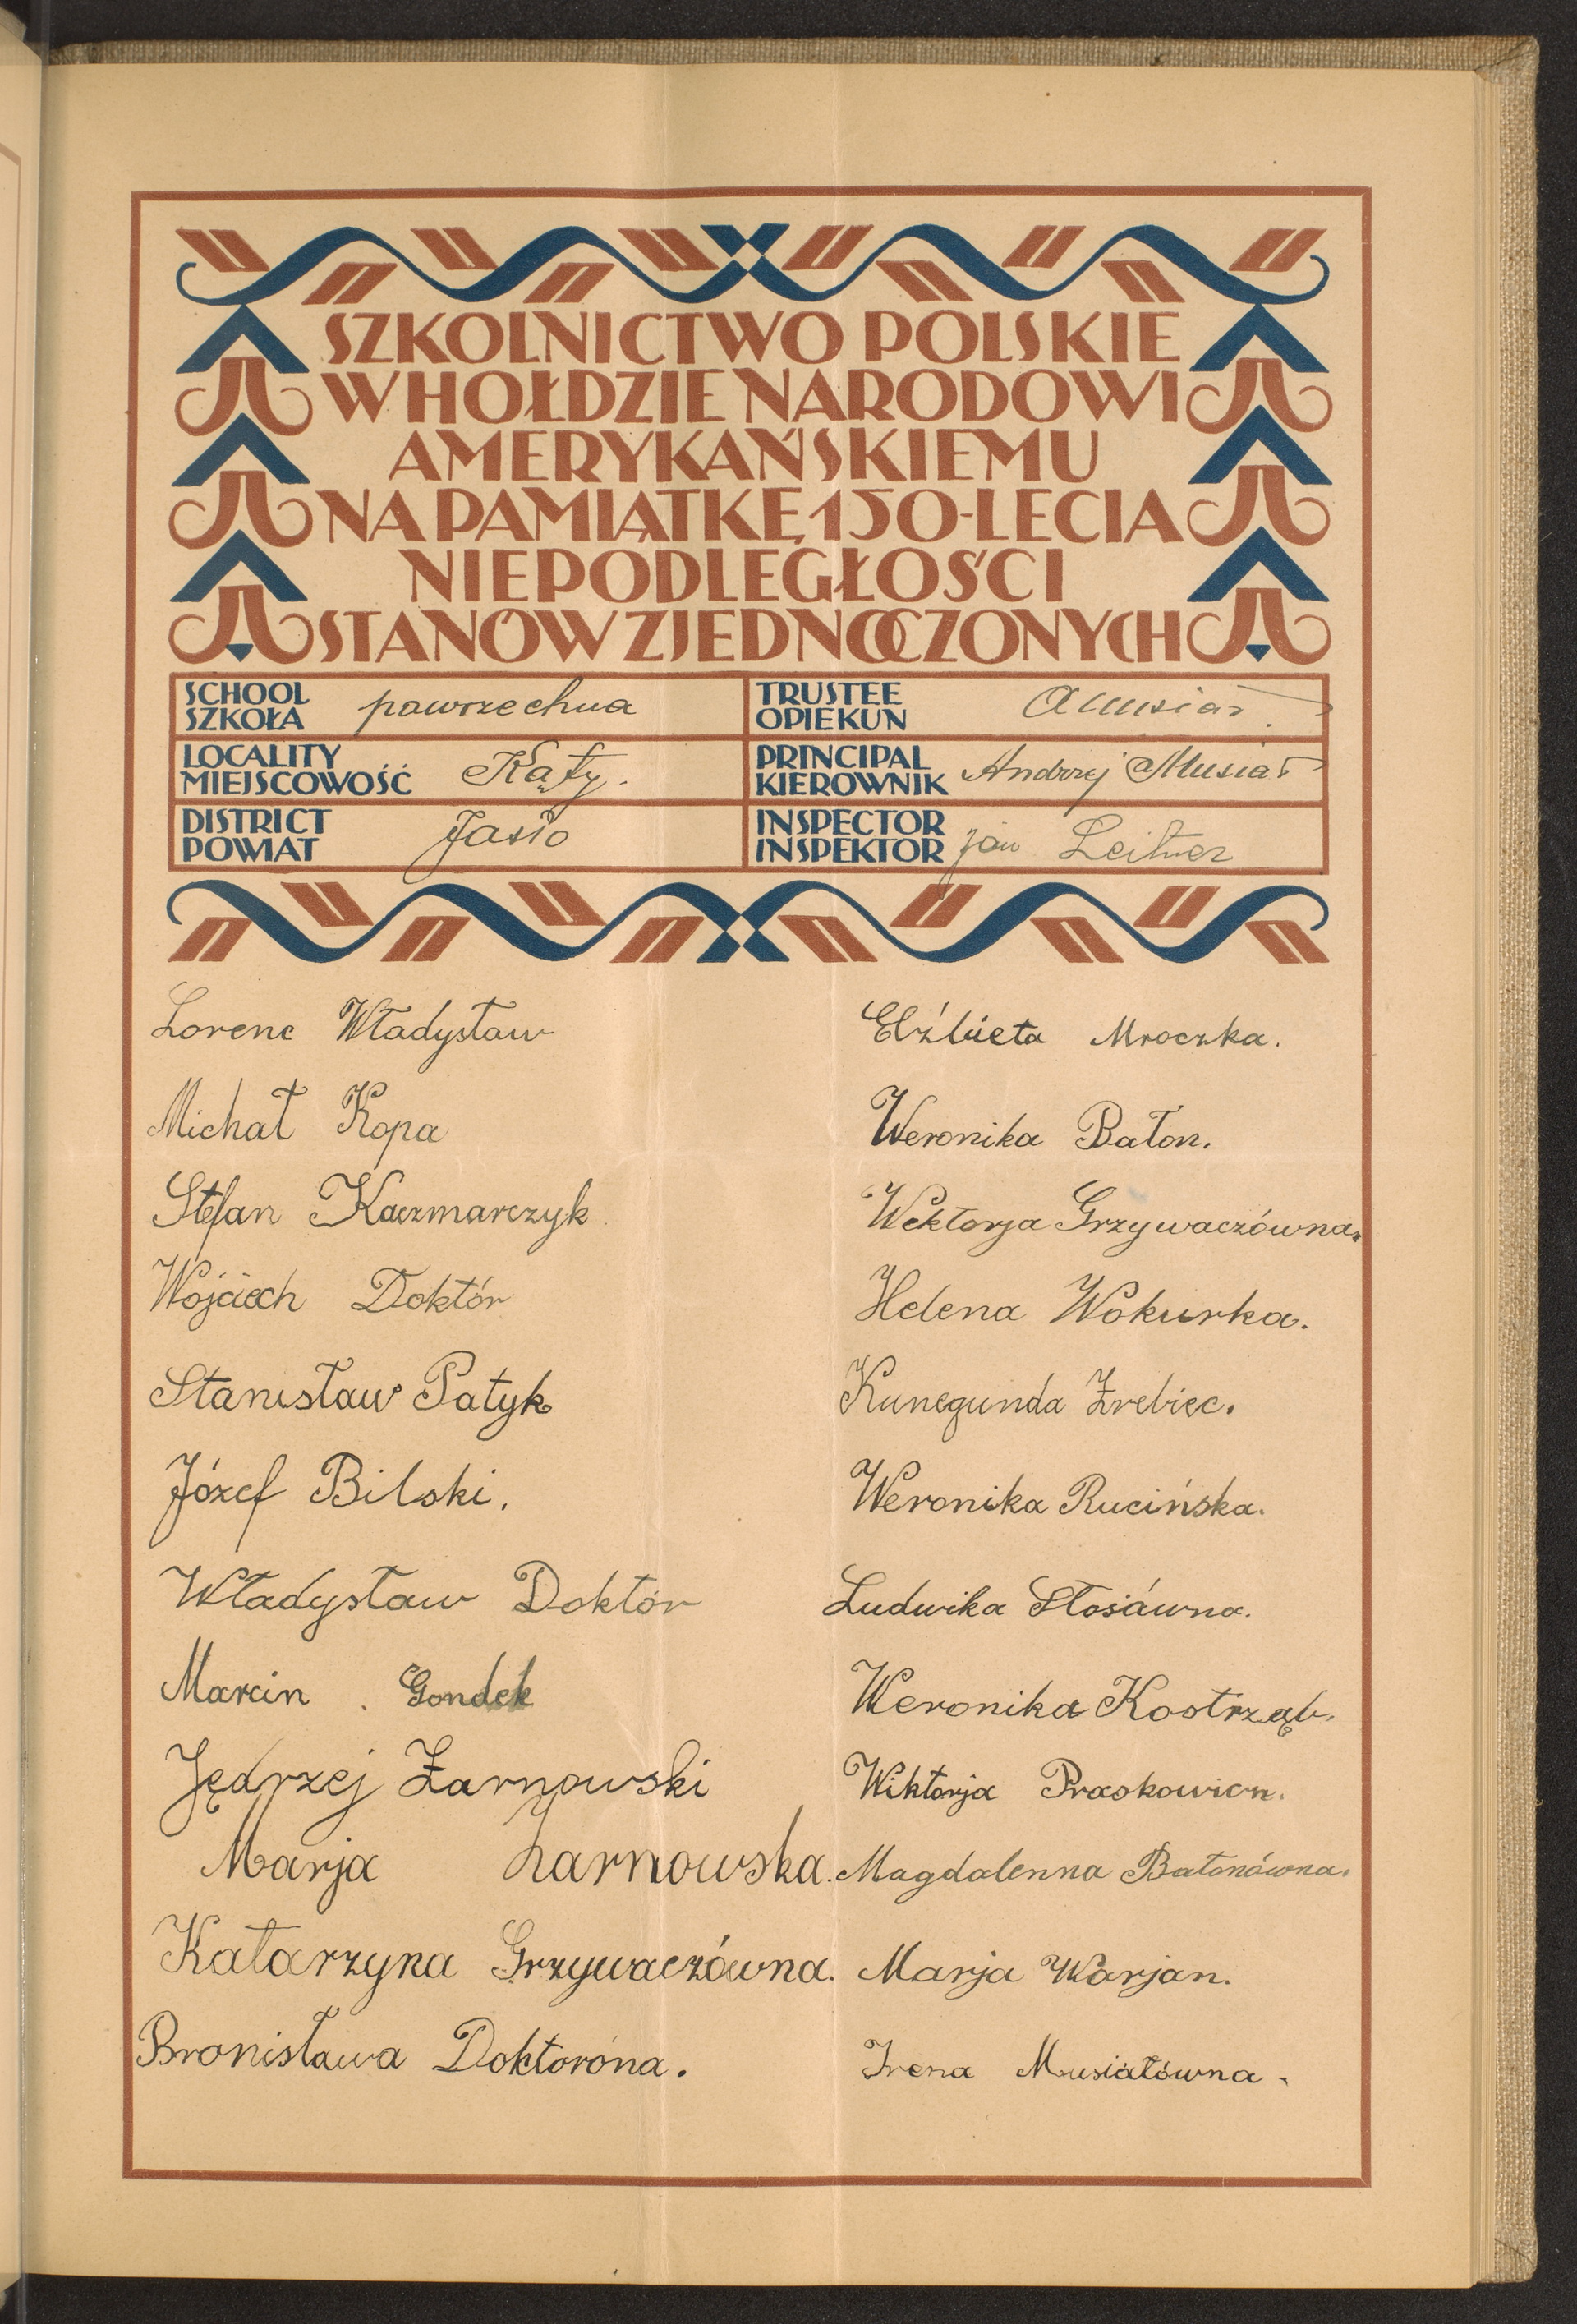 SZKOLNICTWO POLSKIE
W HOŁDZIE NARODOWI
AMERYKAŃSKIEMU
NA PAMIĄTKĘ 150-LECIA
NIEPODLEGŁOŚCI
STANÓW ZJEDNOCZONYCH
SCHOOL
SZKOŁA powszechna
TRUSTEE
OPIEKUN A Musiał
LOCALITY
MIEJSCOWOŚĆ Kąty.
PRINCIPAL
KIEROWNIK Andrzej Musiał
DISTRICT
POWIAT Jasło
INSPECTOR
INSPEKTOR Jan Leitner
Lorenc Władysław
Michał Kopa
Stefan Kaczmarczyk
Wojciech Doktór
Stanisław Patyk
Józef Bilski.
Władysław Doktór
Marcin Gondek
Jędrzej Żarnowski
Marja Żarnowska.
Katarzyna Grzywaczówna.
Bronisława Doktoróna.
Elżbieta Mroczka.
Weronika Bałon.
Wektorja Grzywaczówna.
Helena Wokurka.
Kunegunda Źrebiec.
Weronika Rucińska.
Ludwika Stosiówna.
Weronika Kostrząb.
Wiktorja Praskowicz.
Magdalenna Bałonówna.
Marja Warjan.
Irena Musiałówna.